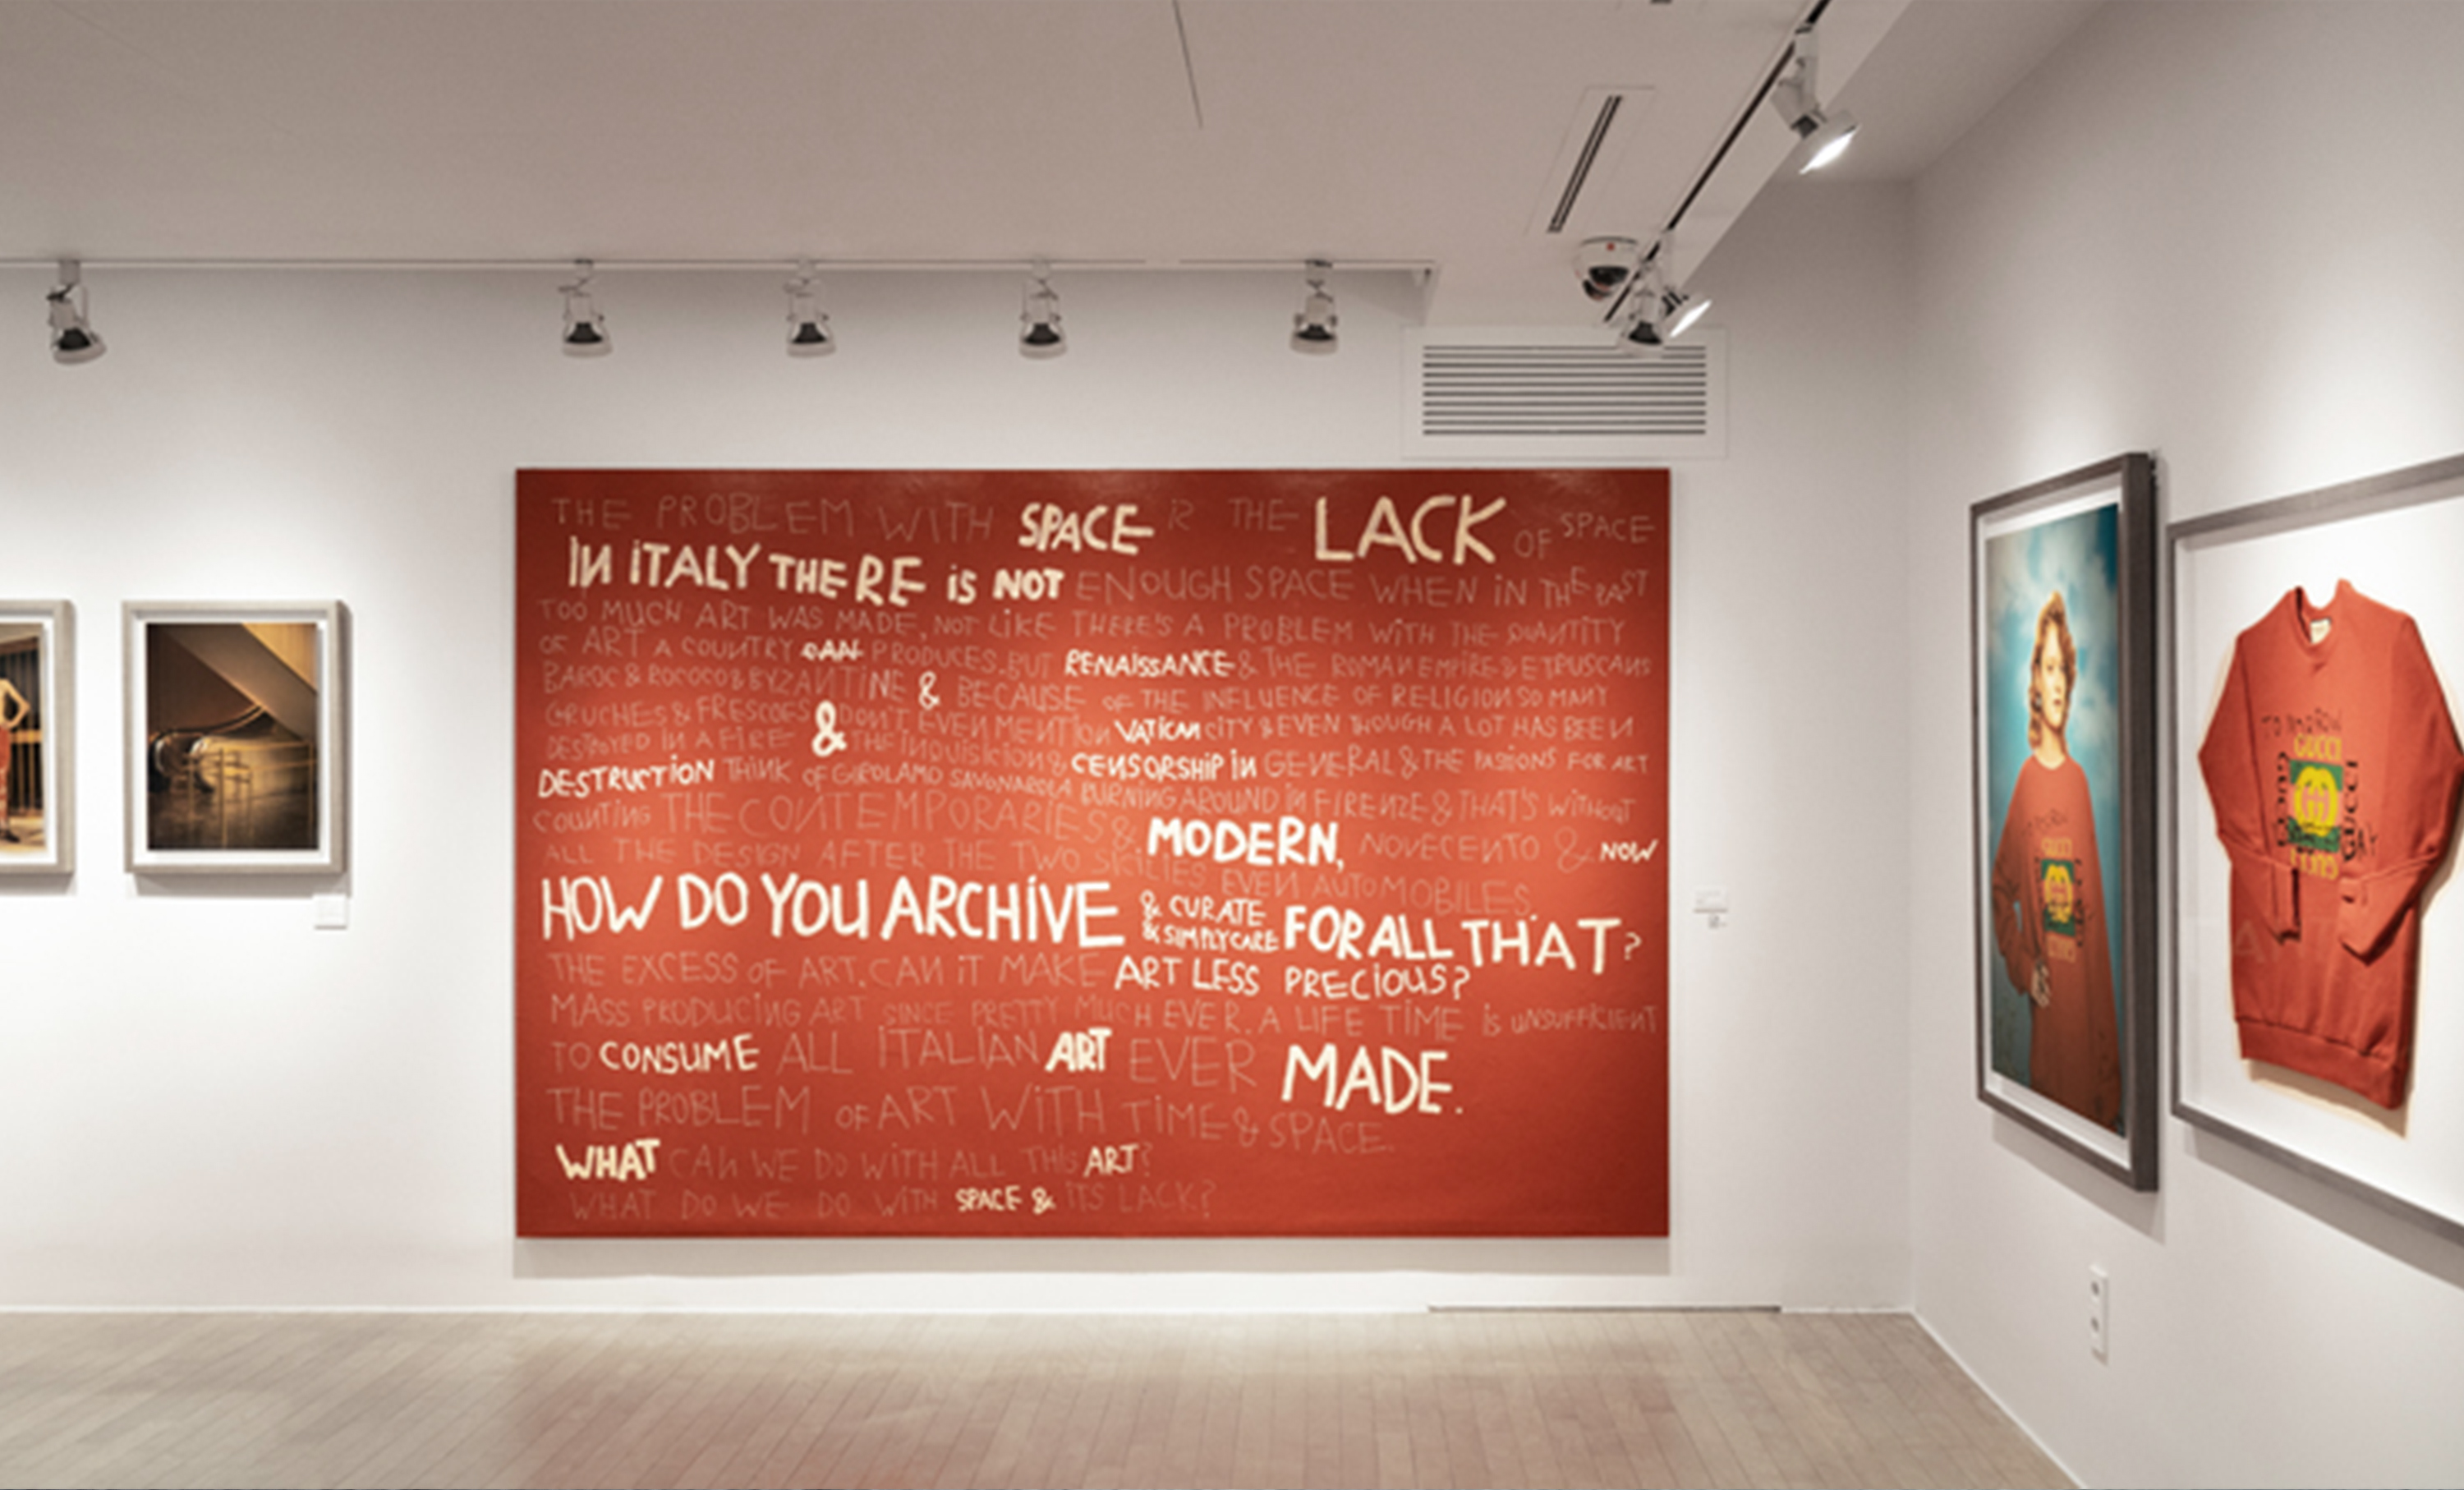 THE PROBLEM WITH SPACE IS THE LACK OF SPACE
IN ITALY THERE IS NOT ENOUGH SPACE WHEN IN THE PAST
TOO MUCH ART WAS MADE, NOT LIKE THERE'S A PROBLEM WITH THE QUANTITY
OF ART A COUNTRY CAN PRODUCES. BUT RENAISSANCE & THE ROMAN EMPIRE & ETRUSCANS
BAROC & ROCOCO & BYZANTINE & BECAUSE OF THE INFLUENCE OF RELIGION SO MANY
CHRUCHES & FRESCOES & DON'T EVEN MENTION VATICAN CITY & EVEN THOUGH A LOT HAS BEEN
DESTROYED IN A FIRE & THE INQUISICION & CENSORSHIP IN GENERAL & THE PASIONS FOR ART
DESTRUCTION THINK OF GIROLAMO SAVONAROLA BURNING AROUND IN FIRENZE & THAT'S WITHOUT
COUNTING THE CONTEMPORARIES & MODERN, NOVECENTO & NOW
ALL THE DESIGN AFTER THE TWO SICILIES EVEN AUTOMOBILES.
HOW DO YOU ARCHIVE & CURATE & SIMPLY CARE FOR ALL THAT?
THE EXCESS OF ART, CAN IT MAKE ART LESS PRECIOUS?
MASS PRODUCING ART SINCE PRETTY MUCH EVER. A LIFE TIME IS UNSUFFICIENT
TO CONSUME ALL ITALIAN ART EVER MADE.
THE PROBLEM OF ART WITH TIME & SPACE.
WHAT CAN WE DO WITH ALL THIS ART?
WHAT DO WE DO WITH SPACE & ITS LACK?
GUCCI
TOMORROW
GUCCI
GUCCI